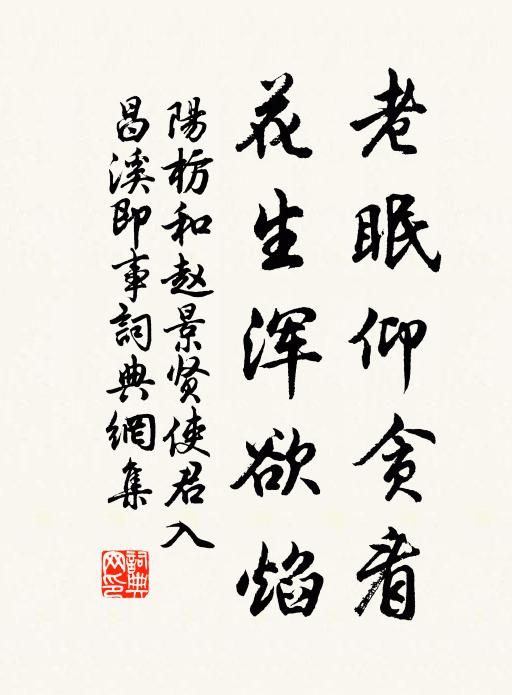 老眠仰贪看
花生浑欲焰
陽枋和赵景贤使君入
昌溪即事詞典網集
詞典网印